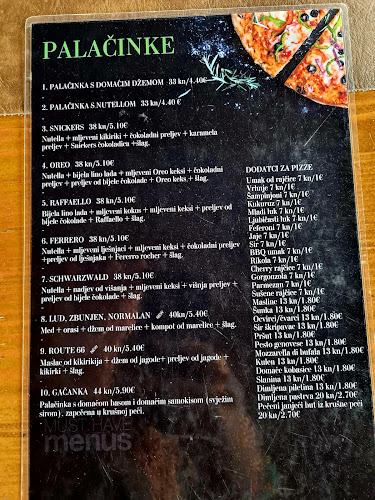 PALAČINKE
1. PALAČINKA S DOMAĆIM DŽEMOM 33 kn/4.40€
2. PALAČINKA S NUTELLOM 33 kn/4.40 €
3. SNICKERS 38 kn/5.10€
Nutella + mljeveni kikiriki + čokoladni preljev + karamela
preljev + Snickers čokoladica +šlag.
4. OREO 38 kn/5.10€
Nutella + bijela lino lada + mljeveni Oreo keksi + čokoladni
preljev + preljev od bijele čokolade + Oreo keks + šlag.
5. RAFFAELLO 38 kn/5.10€
Bijela lino lada + mljeveni kokos + mljeveni keksi + preljev od
bijele čokolade + Raffaello + šlag.
6. FERRERO 38 kn/5.10€
Nutella + mljeveni lješnjaci + mljeveni keksi + čokoladni preljev
+preljev od lješnjaka + Fererro rocher + šlag.
7. SCHWARZWALD 38 kn/5.10€
Nutella + nadjev od višanja + mljeveni keksi + višnja preljev +
preljev od bijele čokolade + šlag.
8. LUD, ZBUNJEN, NORMALAN 40kn/5.40€
Med + orasi + džem od marelice + kompot od marelice + šlag.
9. ROUTE 66 40 kn/5.40€
Maslac od kikirikija + džem od jagode+ preljev od jagode +
kikirki + šlag.
10. GAČANKA 44 kn/5.90€
Palačinka s domaćom basom i domaćim samokisom (svježim
sirom), zapečena u krušnoj peći.
DODATCI ZA PIZZE
Umak od rajčice 7 kn/1€
Vrhnje 7 kn/1€
Šampinjoni 7 kn/1€
Kukuruz 7 kn/1€
Mladi luk 7 kn/1€
Ljubičasti luk 7 kn/1€
Feferoni 7 kn/1€
Jaje 7 kn/1€
Sir 7 kn/1€
BBQ umak 7 kn/1€
Rikola 7 kn/1€
Cherry rajčice 7 kn/1€
Gorgonzola 7 kn/1€
Parmezan 7 kn/1€
Sušene rajčice 7 kn/1€
Masline 13 kn/1.80€
Šunka 13 kn/1.80€
Ocvirci/čvarci 13 kn/1.80€
Sir škripavac 13 kn/1.80€
Pršut 13 kn/1.80€
Pesto genovese 13 kn/1.80€
Mozzarella di bufala 13 kn/1.80€
Kulen 13 kn/1.80€
Domaće kobasice 13 kn/1.80€
Slanina 13 kn/1.80€
Dimljena piletina 13 kn/1.80€
Dimljena pastrva 20 kn/2.70€
Pečeni janjeći but iz krušne peći
20 kn/2.70€
MUST HAVE
menus